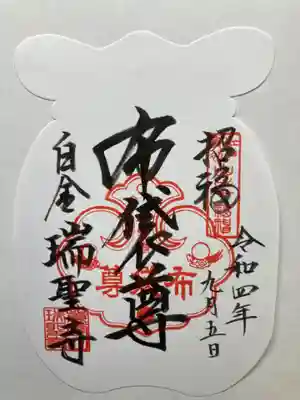 招福
令和四年
九月五日
布袋尊
尊 布
白金 瑞聖寺